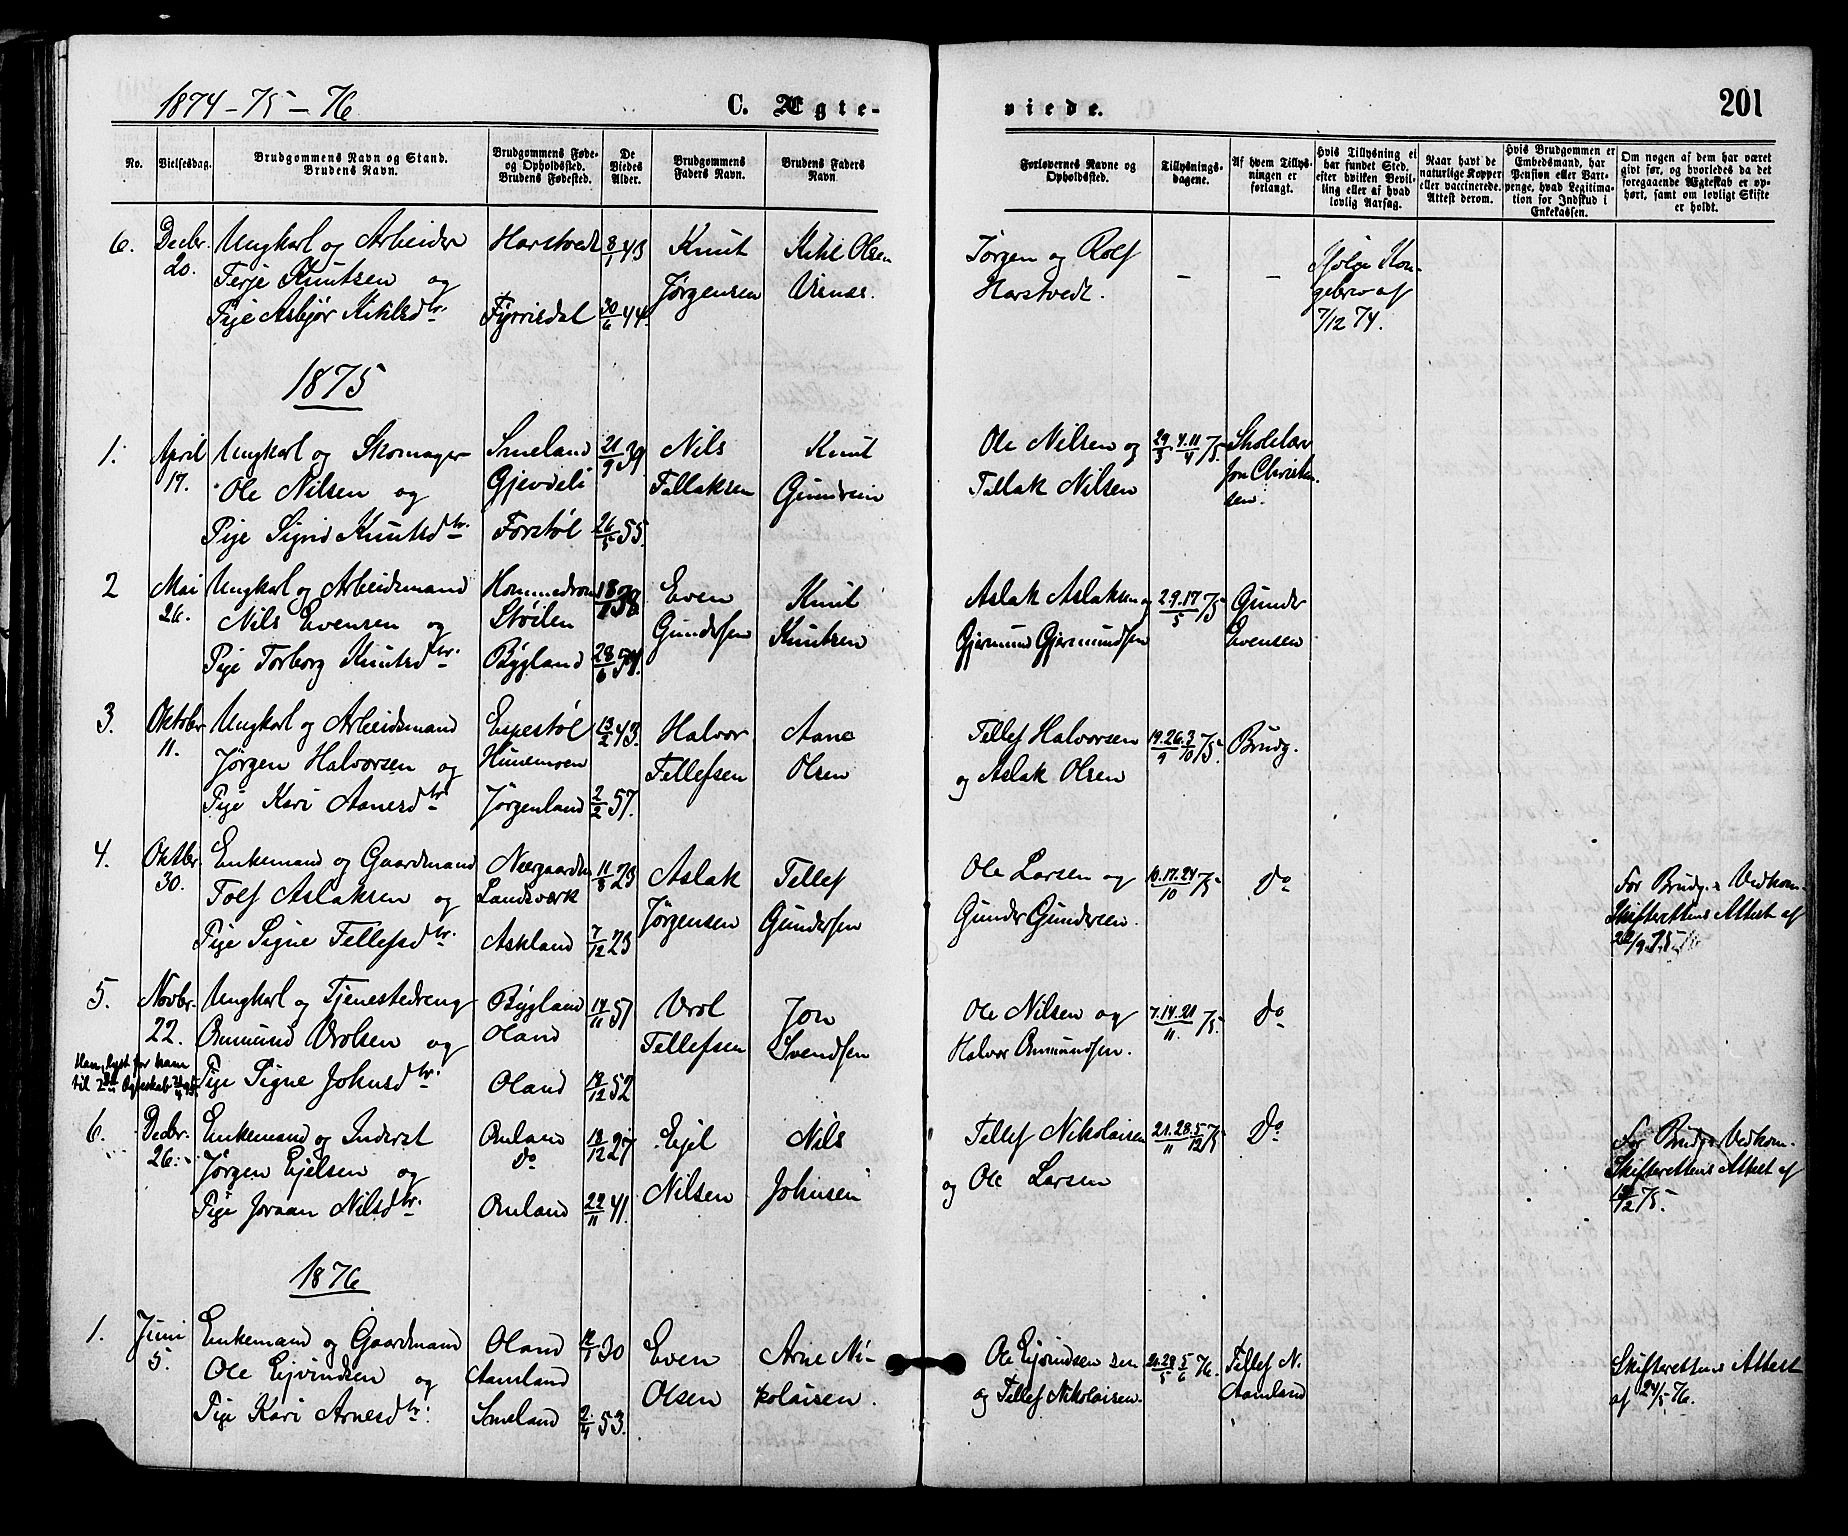 1874-75-76
C. Ægte-
viede.
201
No.
Vielsesdag.
Brudgommens Navn og Stand.
Brudens Navn.
Brudgommens Føde-
og Opholdssted.
Brudens Fødested.
De
Viedes
Alder.
Brudgommens
Faders Navn.
Brudens Faders
Navn.
Forlovernes Navne og
Opholdssted.
Tillysnings-
dagene.
Af hvem Tillys-
ningen er
forlangt.
Hvis Tillysning ei
har fundet Sted,
efter hvilken Bevil-
ling eller af hvad
lovlig Aarsag.
Naar havt de
naturlige Kopper
eller vaccinerede.
Attest derom.
Hvis Brudgommen er
Embedsmand, har
Pension eller Vart-
penge, hvad Legitima-
tion for Indskud i
Enkekassen.
Om nogen af dem har været
givt før, og hvorledes da det
foregaaende Ægteskab er op-
hørt, samt om lovligt Skifte
er holdt.
6.
Decbr.
20.
Ungkarl og Arbeider
Terje Knutsen og
Pige Asbjør Kittilsdtr.
Harstvedt
Fyrrisdal
8/1 43
30/6 44.
Knut
Jørgensen
Kitil Olsen
Jørgen og Rolf
Harstvedt.
-
-
Ifølge Kon-
gebrev af
7/12 74.
1875
1.
April
17.
Ungkarl og Skomager
Ole Nilsen og
Pige Signe Knutsdtr.
Smeland
Gjevdeli
Forstøl
21/9 39
26/5 55.
Nils
Tellaksen
Knut
Gundersen
Ole Nilsen og
Tellak Nilsen
29/3 4.11/4 75.
Skolelær
Jon Christen-
sen.
2
Mai
26.
Ungkarl og Arbeidsmand
Nils Evensen og
Pige Torborg Knutsdtr.
Støilen
Bygland
28/6 54.
Even
Gundersen
Knut
Knutsen
Aslak Aslaksen og
Gjermund Gjermundsen
2.9.17/5 75
Gunder
Evensen
3.
Oktober
11.
Ungkarl og Arbeidsmand
Jørgen Halvorsen og
Pige Kari Aanesdtr
Espestøl
Hunemoen
Jørgenland
13/2 43.
2/2 57.
Halvor
Tellefsen
Aane
Olsen
Tellef Halvorsen
og Aslak Olsen
19.26/9 3/10 75.
Brudg.
4.
Oktbr.
30.
Enkemand og Gaardmand
Tolf Aslaksen og
Pige Signe Tellefsdtr.
Landsværk
Askland
11/8 23
7/12 23
Aslak
Jørgensen
Tellef
Gundersen
Ole Larsen og
Gunder Gundersen.
10.17.24/10 75
do
For Brudg. Vedkom.
Skifterettens Attest af
5.
Novbr.
22.
Ungkarl og Tjenestedreng
Osmund Vrolsen og
Pige Signe Johnsdtr.
Bygland
Oland
Oland
14/11 51
12/12 52
Vrol
Tellefsen
Jon
Svendsen
Ole Nilsen og
Halvor Osmundsen.
7.14.21/11 75.
do
6.
Decbr.
26.
Enkemand og Inderst
Jørgen Ejelsen og
Pige Joraan Nilsdtr.
Omland
do
Omland
18/12 27
22/11 41.
Ejel
Nilsen
Nils
Johnsen
Tellef Nikolaisen
og Ole Larsen
21.28/11 5/12 75
Do
For Brudgs Vedkom.
Skifterettens Attest af
1876
1.
Juni
5.
Enkemand og Gaardmand
Ole Ejvindsen og
Pige Kari Arnesdtr.
Oland
Aamland
Smeland
2/4 53.
Even
Olsen
Arne Ni-
kolaisen.
Ole Ejvindsen sen
og Tellef Nikolaisen.
21.28/5 5/6 76.
Tellef N.
Aamland
Skifterettens Attest
af 24/5 76.